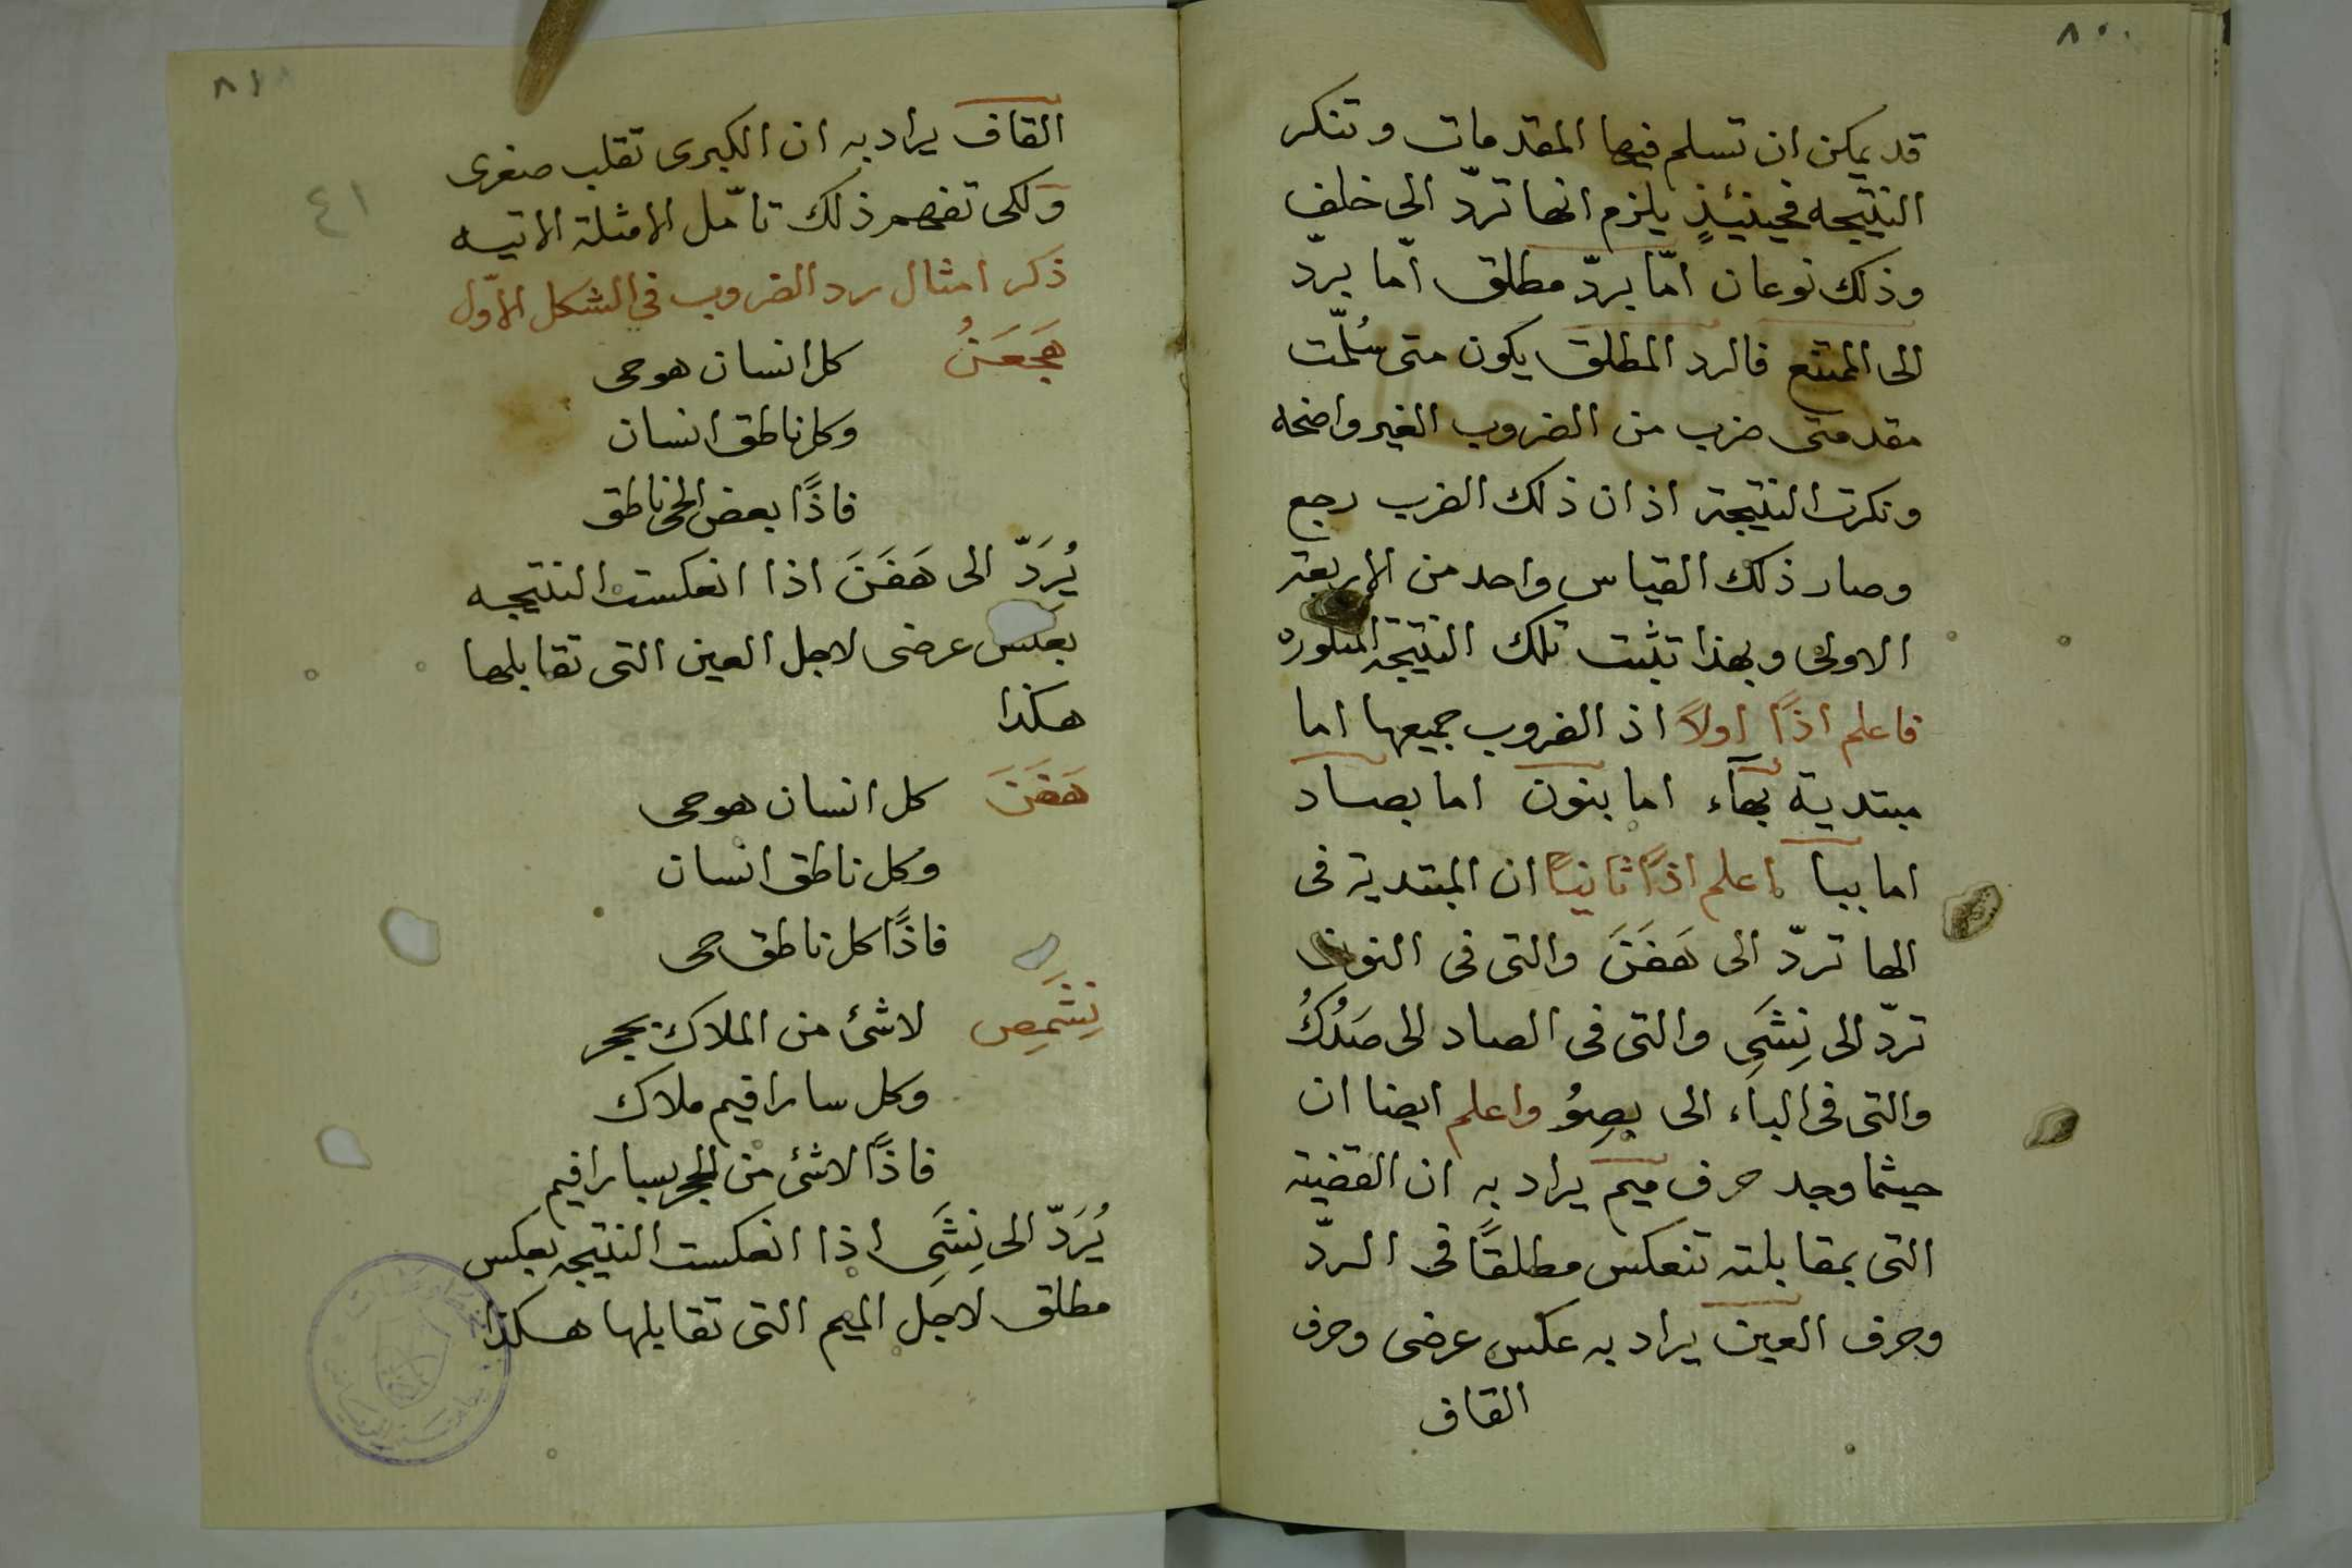 ٨٠
قد يمكن ان تسلم فيها المقدمات وتنكر
النتيجه فحينئيذٍ يلزم انها تردّ الى خلف
وذلك نوعان امّا بردّ مطلق امّا بردّ
الى الممتنع فالرد المطلق يكون متى سُلّمت
مقدمتى ضرب من الضروب الغير واضحه
ونكرت النتيجة اذ ان ذلك الضرب رجع
وصار ذلك القياس واحد من الاربعة
الاولى وبهذا تثبت تلك النتيجة المنكوره
فاعلم اذًا اولاً اذ الضروب جميعها اما
مبتدية بهآء اما بنون اما بصاد
اما ببا اعلم اذًا ثانيًا ان المبتدية فى
الها تردّ الى هَفَنَ والتى فى النون
تردّ الى نِشَىِ والتى فى الصاد الى صَدُكُ
والتى فى الباء الى بصِوُ واعلم ايضا ان
حيثما وجد حرف ميم يراد به ان القضية
التى بمقابلته تنعكس مطلقًا فى الردّ
وحرف العين يراد به عكس عرضى وحرف
القاف
٨١
٤١
القاف يراد به ان الكبرى تقلب صغرى
ولكى تفهم ذلك تامّل الامثلة الاتيه
ذكر امثال رد الضروب فى الشكل الاوّل
هَجَعَنُ كل انسان هو حى
وكل ناطق انسان
فاذًا بعض الحى ناطق
يُرَدّ الى هَفَنَ اذا انعكست النتيجه
بعكس عرضى لاجل العين التى تقابلها
هكذا
هَفَنَ كل انسان هو حى
وكل ناطق انسان
فاذًا كل ناطق حى
نِشَمِص لاشئ من الملاك بحجر
وكل سارافيم ملاك
فاذًا لاشئ من الحجر بسارافيم
يُرَدّ الى نِشَىِ اذا انعكست النتيجه بعكس
مطلق لاجل الميم التى تقابلها هكذا